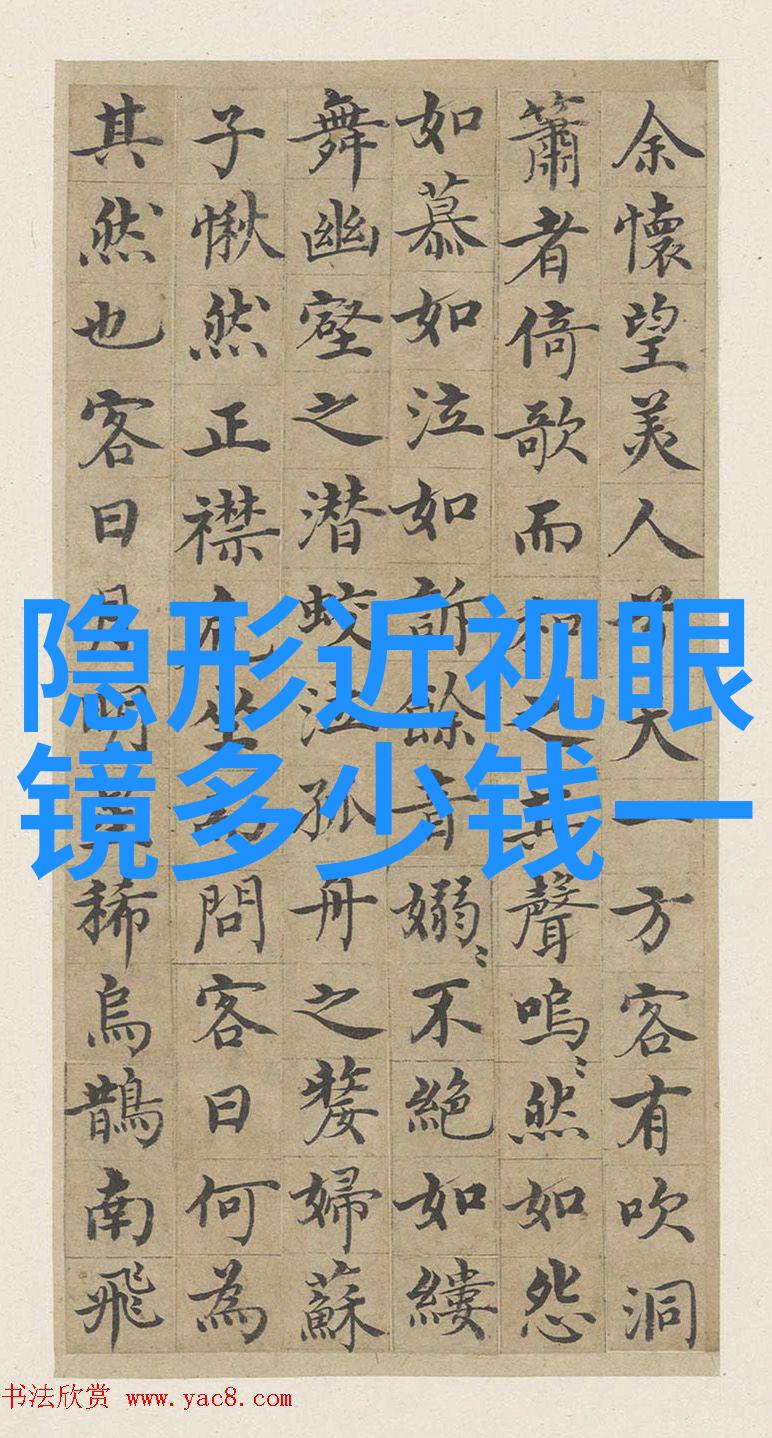 余懷望美人兮天一方客有吹洞
簫者倚歌而和之其聲嗚〻然如怨
如慕如泣如訴餘音嫋〻不絕如縷
舞幽壑之潛蛟泣孤舟之嫠婦蘇
子愀然正襟危坐而問客曰何為
其然也客曰月明星稀烏鵲南飛
隐形近视眼
镜多少钱一
书法欣赏 www.yac8.com